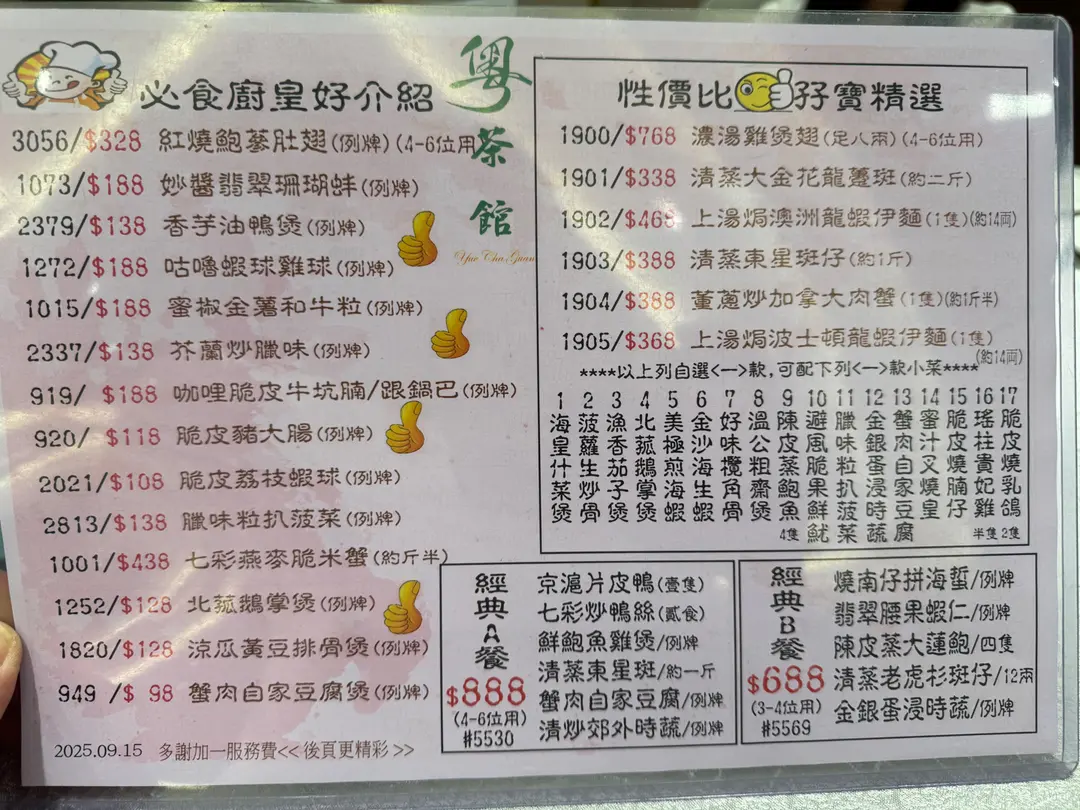 必食廚皇好介紹
3056/$328 紅燒鮑蔘肚翅(例牌)(4-6位用)
1073/$188 妙醬翡翠珊瑚蚌(例牌)
2379/$138 香芋油鴨煲(例牌)
1272/$188 咕嚕蝦球雞球(例牌)
1015/$188 蜜椒金薯和牛粒(例牌)
2337/$138 芥蘭炒臘味(例牌)
919/ $188 咖哩脆皮牛坑腩/跟鍋巴(例牌)
920/ $118 脆皮豬大腸(例牌)
2021/$108 脆皮荔枝蝦球(例牌)
2813/$138 臘味粒扒菠菜(例牌)
1001/$438 七彩燕麥脆米蟹(約斤半)
1252/$128 北菰鵝掌煲(例牌)
1820/$128 涼瓜黃豆排骨煲(例牌)
949 /$ 98 蟹肉自家豆腐煲(例牌)
2025.09.15 多謝加一服務費<< 後頁更精彩 >>
粵茶館
Yue Cha Guan
性價比孖寶精選
1900/$768 濃湯雞煲翅(足八兩)(4-6位用)
1901/$338 清蒸大金花龍躉斑(約二斤)
1902/$468 上湯焗澳洲龍蝦伊麵(1隻)(約14両)
1903/$388 清蒸東星斑仔(約1斤)
1904/$388 薑蔥炒加拿大肉蟹(1隻)(約1斤半)
1905/$368 上湯焗波士頓龍蝦伊麵(1隻)
(約14両)
****以上列自選<一>款,可配下列<一>款小菜****
1 海皇什菜煲
2 菠蘿生炒骨
3 漁香茄子煲
4 北菰鵝掌煲
5 美極煎海蝦
6 金沙海生蝦
7 好味欖角骨
8 溫公粗齋煲
9 陳皮蒸鮑魚4隻
10 避風脆果鮮魷
11 臘味粒扒菠菜
12 金銀蛋浸時蔬
13 蟹肉自家豆腐
14 蜜汁叉燒皇
15 脆皮燒腩仔
16 瑤柱貴妃雞半隻
17 脆皮燒乳鴿2隻
經典A餐
$888
(4-6位用)
#5530
京滬片皮鴨(壹隻)
七彩炒鴨絲(貳食)
鮮鮑魚雞煲/例牌
清蒸東星斑/約一斤
蟹肉自家豆腐/例牌
清炒郊外時蔬/例牌
經典B餐
$688
(3-4位用)
#5569
燒南仔拼海蜇/例牌
翡翠腰果蝦仁/例牌
陳皮蒸大蓮鮑/四隻
清蒸老虎杉斑仔/12兩
金銀蛋浸時蔬/例牌